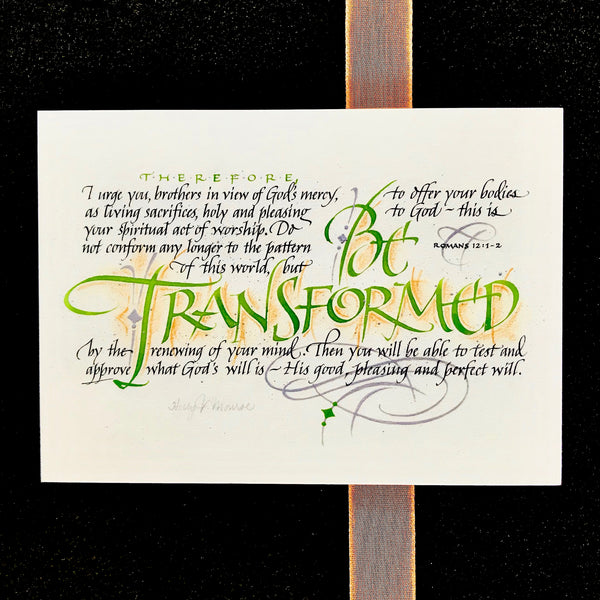 THEREFORE,
I urge you, brothers in view of God's mercy, to offer your bodies
as living sacrifices, holy and pleasing to God ~ this is
your spiritual act of worship. Do
not conform any longer to the pattern
of this world, but
Be
ROMANS 12:1-2
TRANSFORMED
by the renewing of your mind. Then you will be able to test and
approve what God's will is ~ His good, pleasing and perfect will.